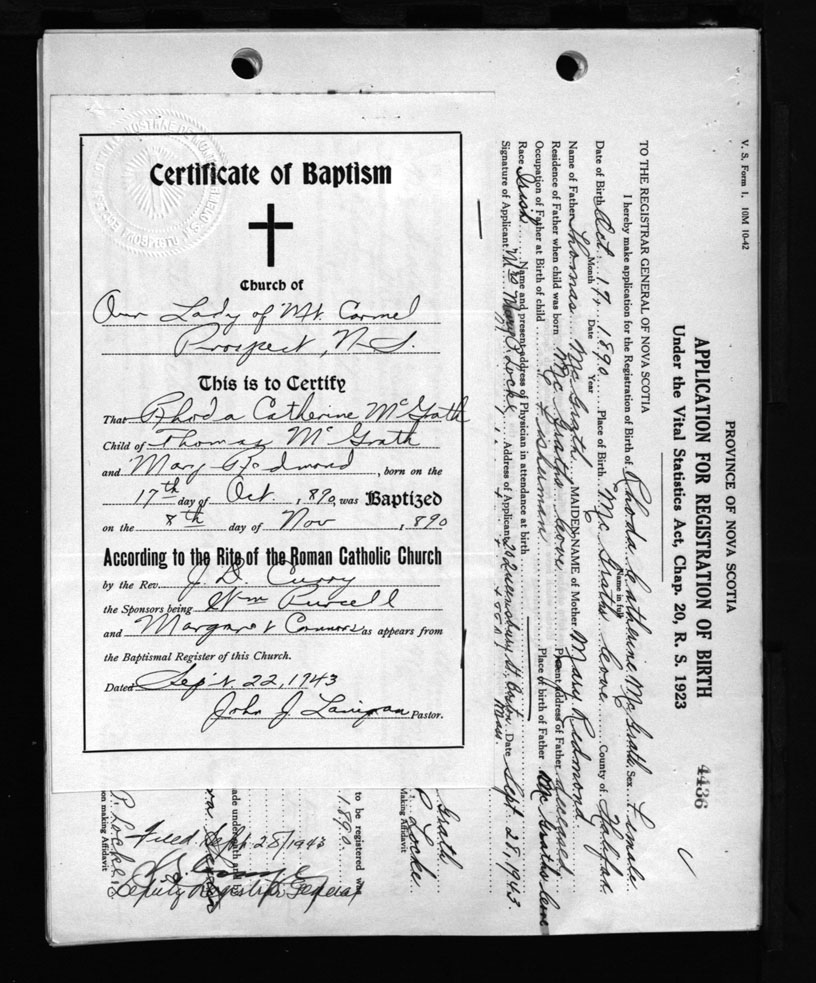 Certificate of Baptism
Church of
Our Lady of Mt. Carmel
Prospect, N.S.
This is to Certify
That Rhoda Catherine McGrath
Child of Thomas McGrath
and Mary Redmond, born on the
17th day of Oct., 1890, was Baptized
on the 8th day of Nov, 1890
According to the Rite of the Roman Catholic Church
by the Rev. J. D. Curry
the Sponsors being Wm Purcell
and Margaret Connors as appears from
the Baptismal Register of this Church.
Dated Sep't. 22, 1943
John J. Lanigan Pastor.
V. S. Form 1. 10M 10-42
PROVINCE OF NOVA SCOTIA
APPLICATION FOR REGISTRATION OF BIRTH
Under the Vital Statistics Act, Chap. 20, R. S. 1923
4436
TO THE REGISTRAR GENERAL OF NOVA SCOTIA
I hereby make application for the Registration of Birth of Rhoda Catherine McGrath Sex Female
Name in full
Date of Birth Oct. 17, 1890 Place of Birth McGraths Cove County of Halifax
Month Date Year
Name of Father Thomas McGrath MAIDEN NAME of Mother Mary Redmond
Residence of Father when child was born McGraths Cove Present address of Father deceased
Occupation of Father at Birth of child Fisherman Place of birth of Father McGraths Cove
Race Irish Name and present address of Physician in attendance at birth
Signature of Applicant Mrs Mary P. Locke Address of Applicant 20 Queensbury St. Boston Mass. Date Sept 28, 1943.
Grath
P Locke
Making Affidavit
to be registered
1890
ade under oath
P. Locke
on making Affidavit
Filed Sept 28/1943
Deputy Registrar General